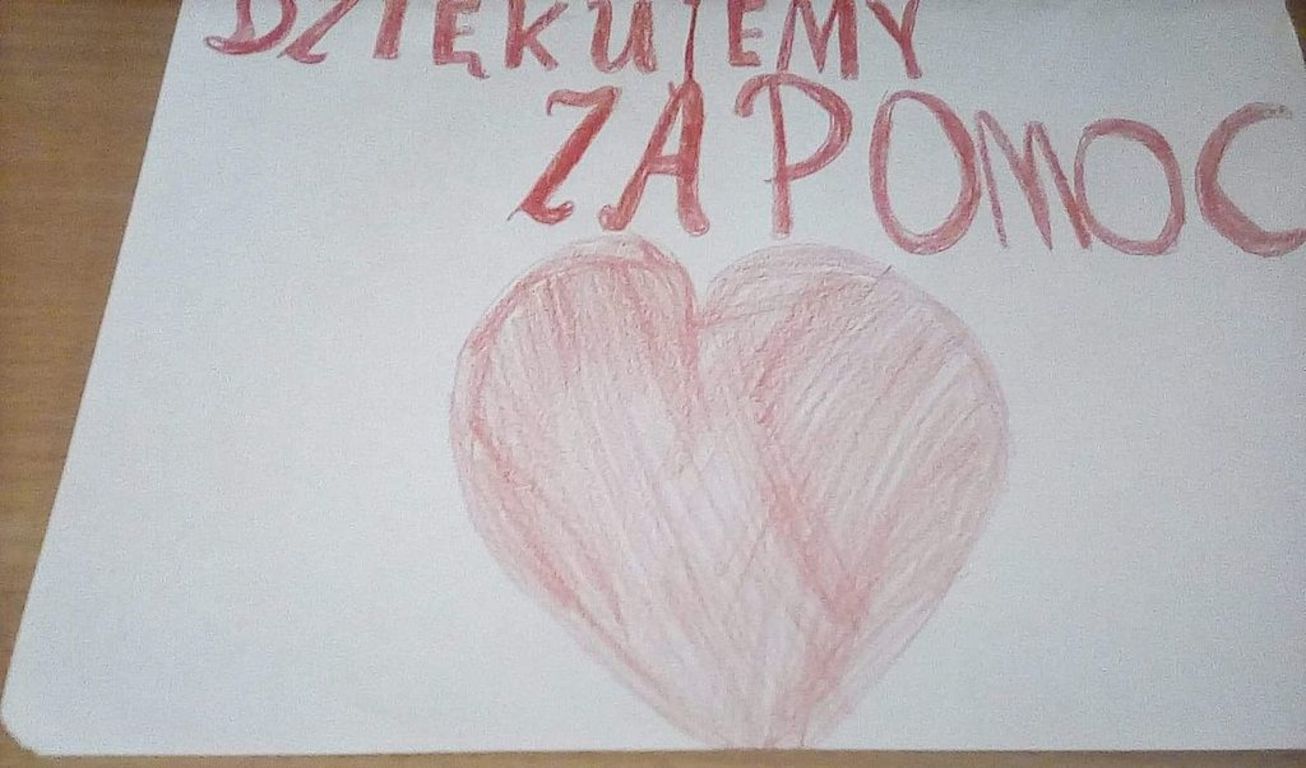 DZIĘKUJEMY
ZA POMOC